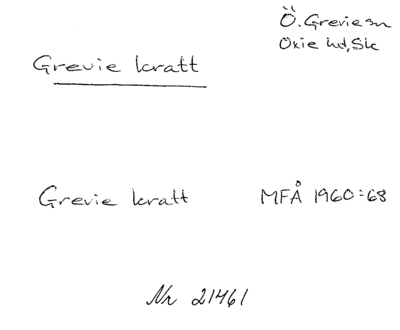 Ö. Grevie sn
Oxie hd, Sk
Grevie kratt
Grevie kratt MFÅ 1960:68
Nr 21461